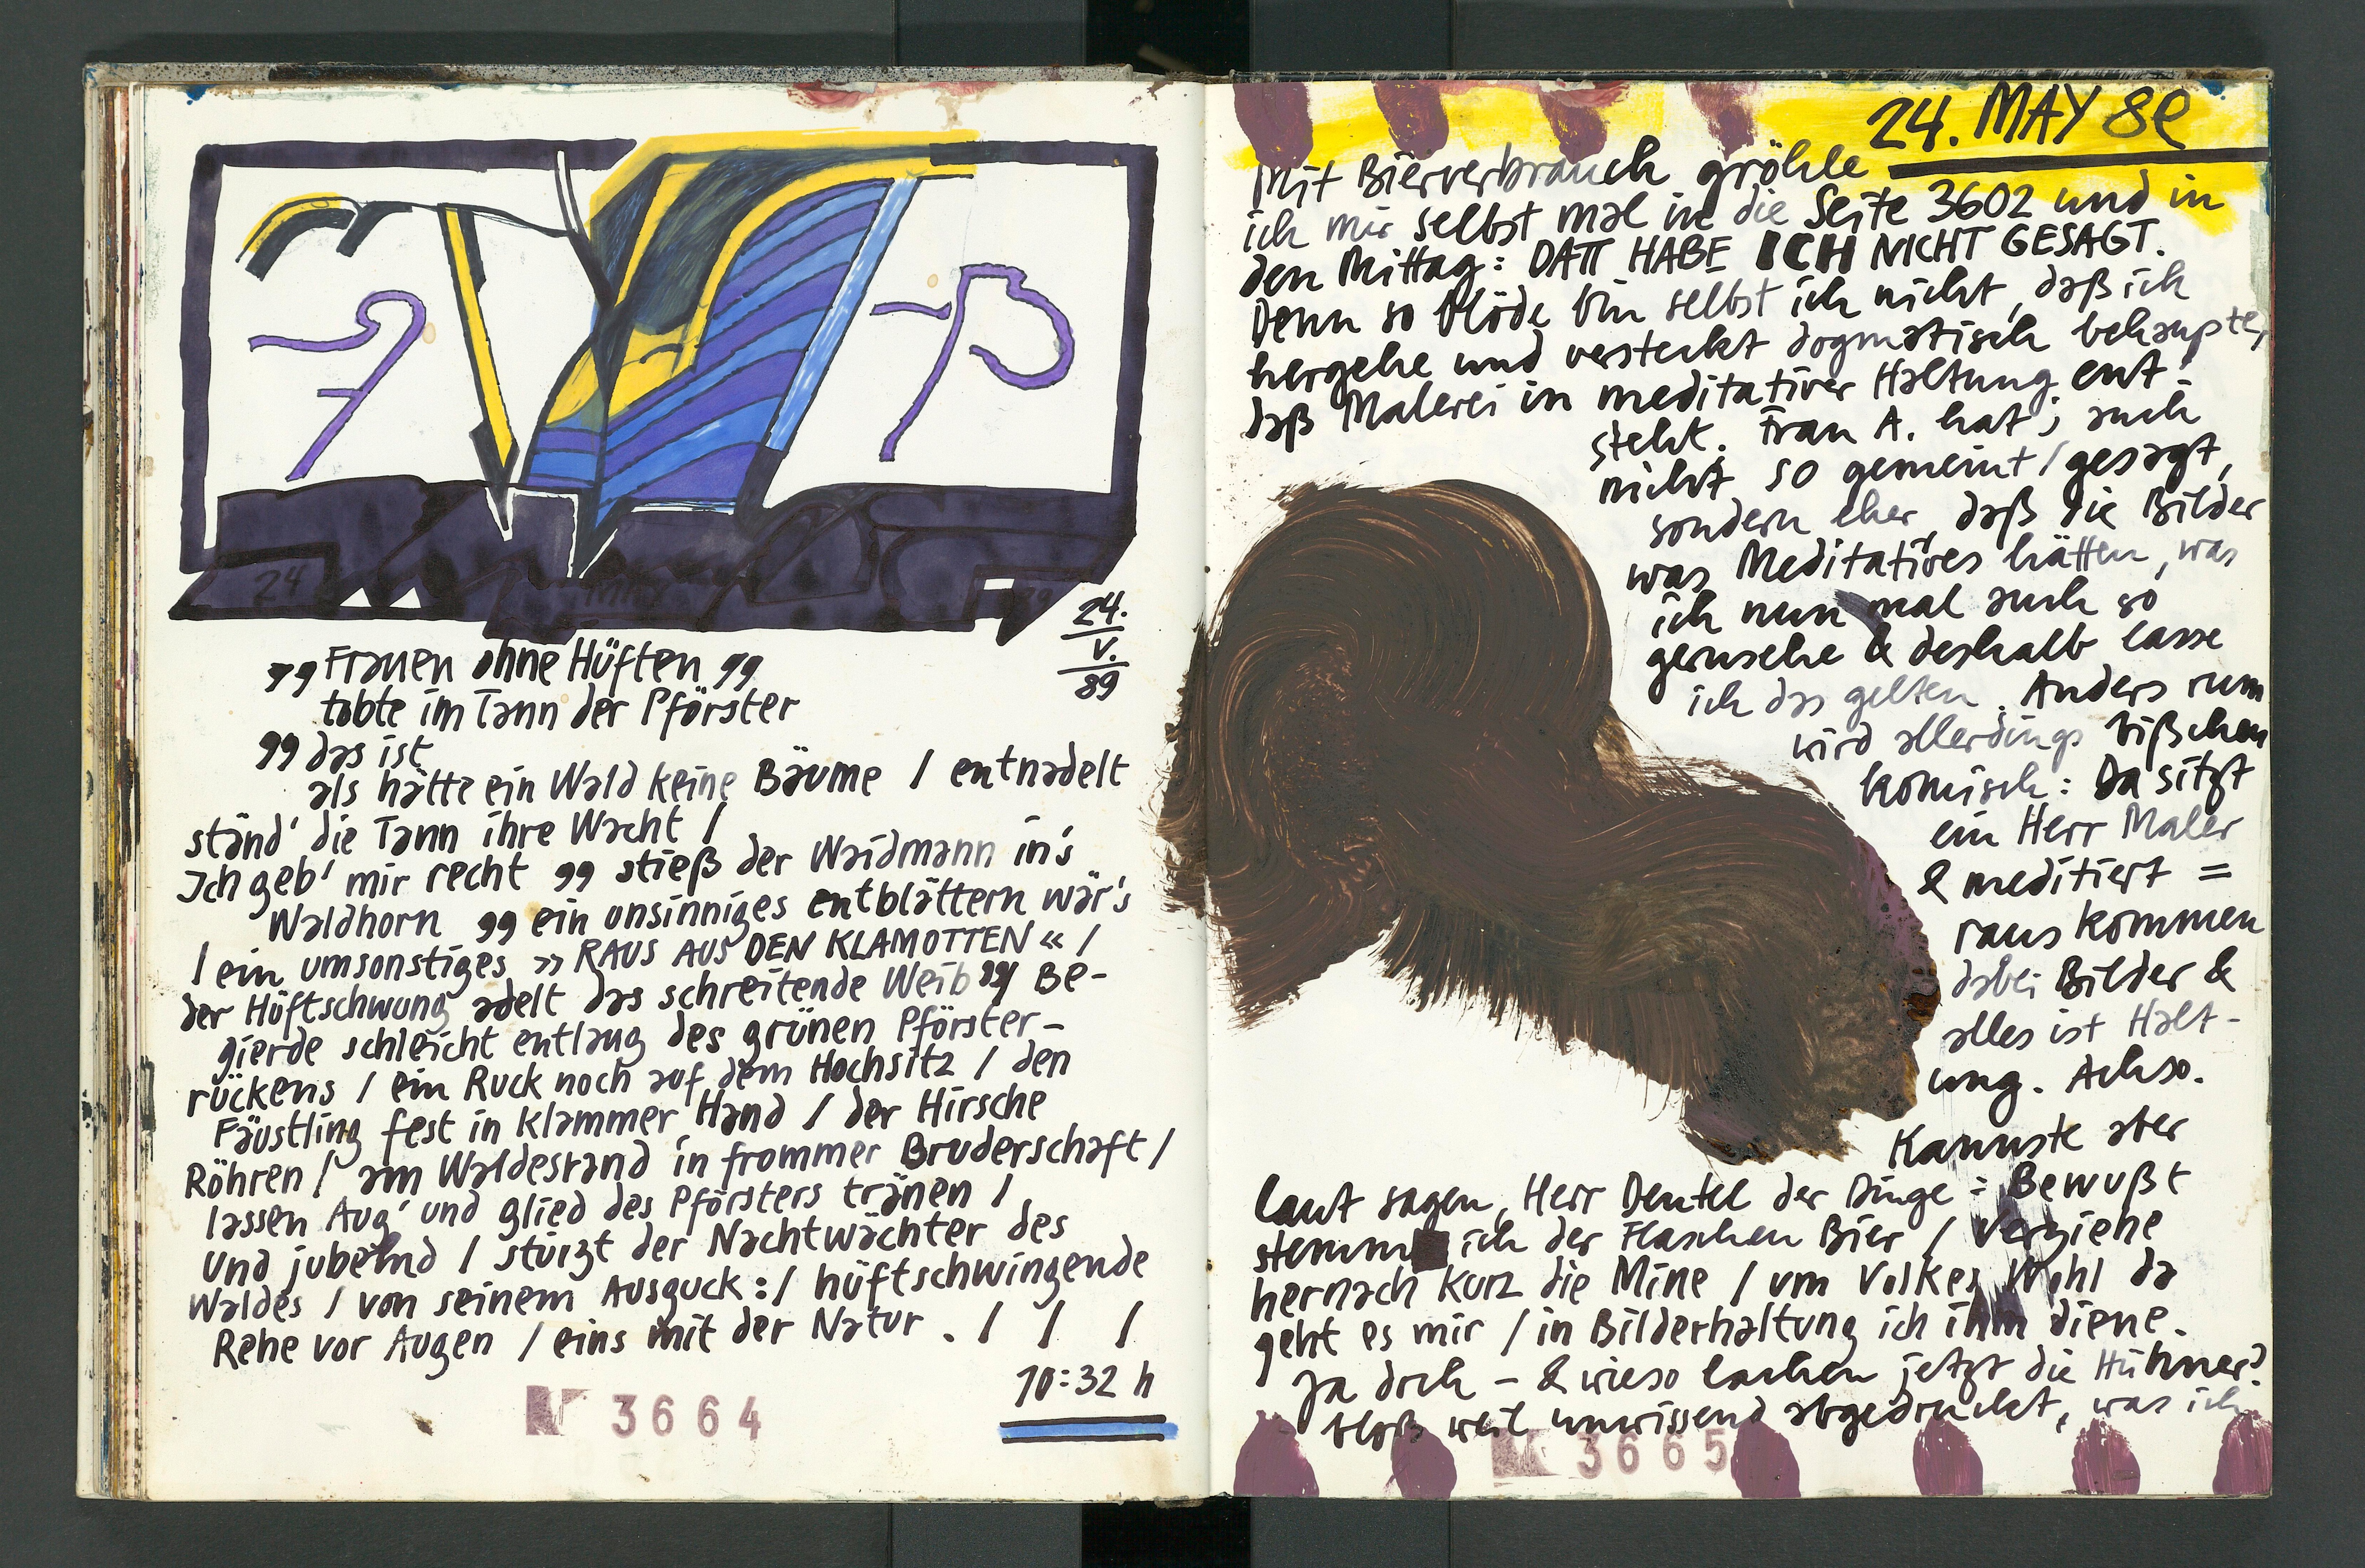 24.
V.
89
„Frauen ohne Hüften"
tobte im Tann der Pförster
"das ist
als hätte ein Wald keine Bäume / entnadelt
ständ' die Tann ihre Wacht /
Ich geb' mir recht " stieß der Waidmann in's
Waldhorn " ein unsinniges entblättern wär's
/ ein umsonstiges »RAUS AUS DEN KLAMOTTEN« /
der Hüftschwung adelt das schreitende Weib "/ Be-
gierde schleicht entlang des grünen Pförster-
rückens / ein Ruck noch auf dem Hochsitz / den
Fäustling fest in klammer Hand / der Hirsche
Röhren / am Waldesrand in frommer Bruderschaft /
lassen Aug' und Glied des Pförsters tränen /
Und jubelnd / stürzt der Nachtwächter des
Waldes / von seinem Ausguck : / hüftschwingende
Rehe vor Augen / eins mit der Natur . / / /
10:32 h
3664
24. MAY 89
Mit Bierverbrauch gröhle
ich mir selbst mal in die Seite 3602 und in
den Mittag: DATT HABE ICH NICHT GESAGT.
Denn so blöde bin selbst ich nicht, daß ich
hergehe und versteckt dogmatisch behaupte,
daß Malerei in meditativer Haltung ent-
steht. Frau A. hat's auch
nicht so gemeint / gesagt,
sondern eher, daß die Bilder
was Meditatives hätten, was
ich nun mal auch so
geschehe & deshalb lasse
ich das gelten. Anders rum
wird allerdings bißchen
komisch: Da sitzt
ein Herr Maler
& meditiert =
raus kommen
dabei Bilder &
alles ist Halt-
ung. Achso.
Kannste aber
laut sagen, Herr Deutel der Dinge: Bewußt
stemm ich der Flaschen Bier / verziehe
hernach kurz die Mine / um Volkes Wohl da
geht es mir / in Bilderhaltung ich ihm diene.
Ja doch – & wieso lachen jetzt die Hühner?
bloß weil unwissend abgedruckt, was ich
3665